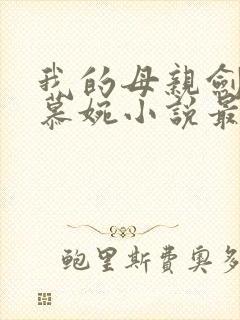 我的母親劍
慕婉小說最
鮑里斯費奧多